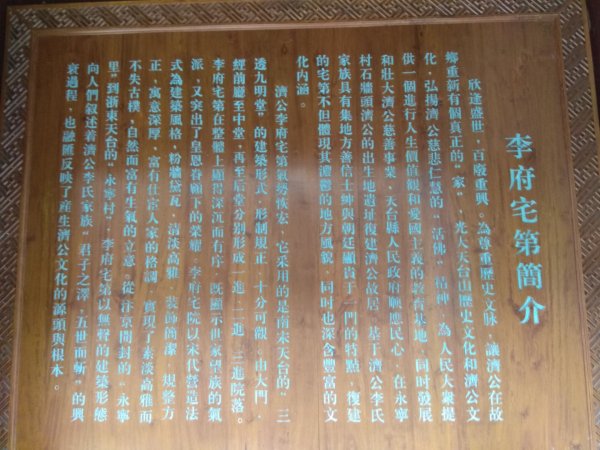 李府宅第簡介
欣逢盛世，百廢重興。為尊重歷史文脉，讓濟公在故
鄉重新有個真正的“家”，光大天台山歷史文化和濟公文
化，弘揚濟公慈悲仁慧的“活佛”精神，為人民大衆提
供一個進行人生價值觀和愛國主義的教育基地，同時發展
和壯大濟公慈善事業，天台縣人民政府順應民心，在永寧
村石牆頭濟公的出生地遺址復建濟公故居。基于濟公李氏
家族具有集地方善信士紳與朝廷顯貴于一門的特點，復建
的宅第不但體現其濃鬱的地方風貌，同時也深含豐富的文
化内涵。
濟公李府宅第氣勢恢宏，它采用的是南宋天台的“三
透九明堂”的建築形式，形制規正，十分可觀。由大門，
經前廳至中堂，再至后堂分别形成一進、二進、三進院落。
李府宅第在整體上顯得深沉而有序，既顯示世家望族的氣
派，又突出了皇恩眷顧下的榮耀。李府宅院以宋代營造法
式為建築風格，粉牆黛瓦，清淡高雅，裝飾簡潔，規整方
正，寓意深厚，富有仕宦人家的格調，實現了素淡高雅而
不失古樸，自然而富有生氣的立意。從汴京開封的“永寧
里”到浙東天台的“永寧村”，李府宅第以無聲的建築形態
向人們叙述着濟公李氏家族“君子之澤，五世而斬”的興
衰過程，也融匯反映了産生濟公文化的源頭與根本。